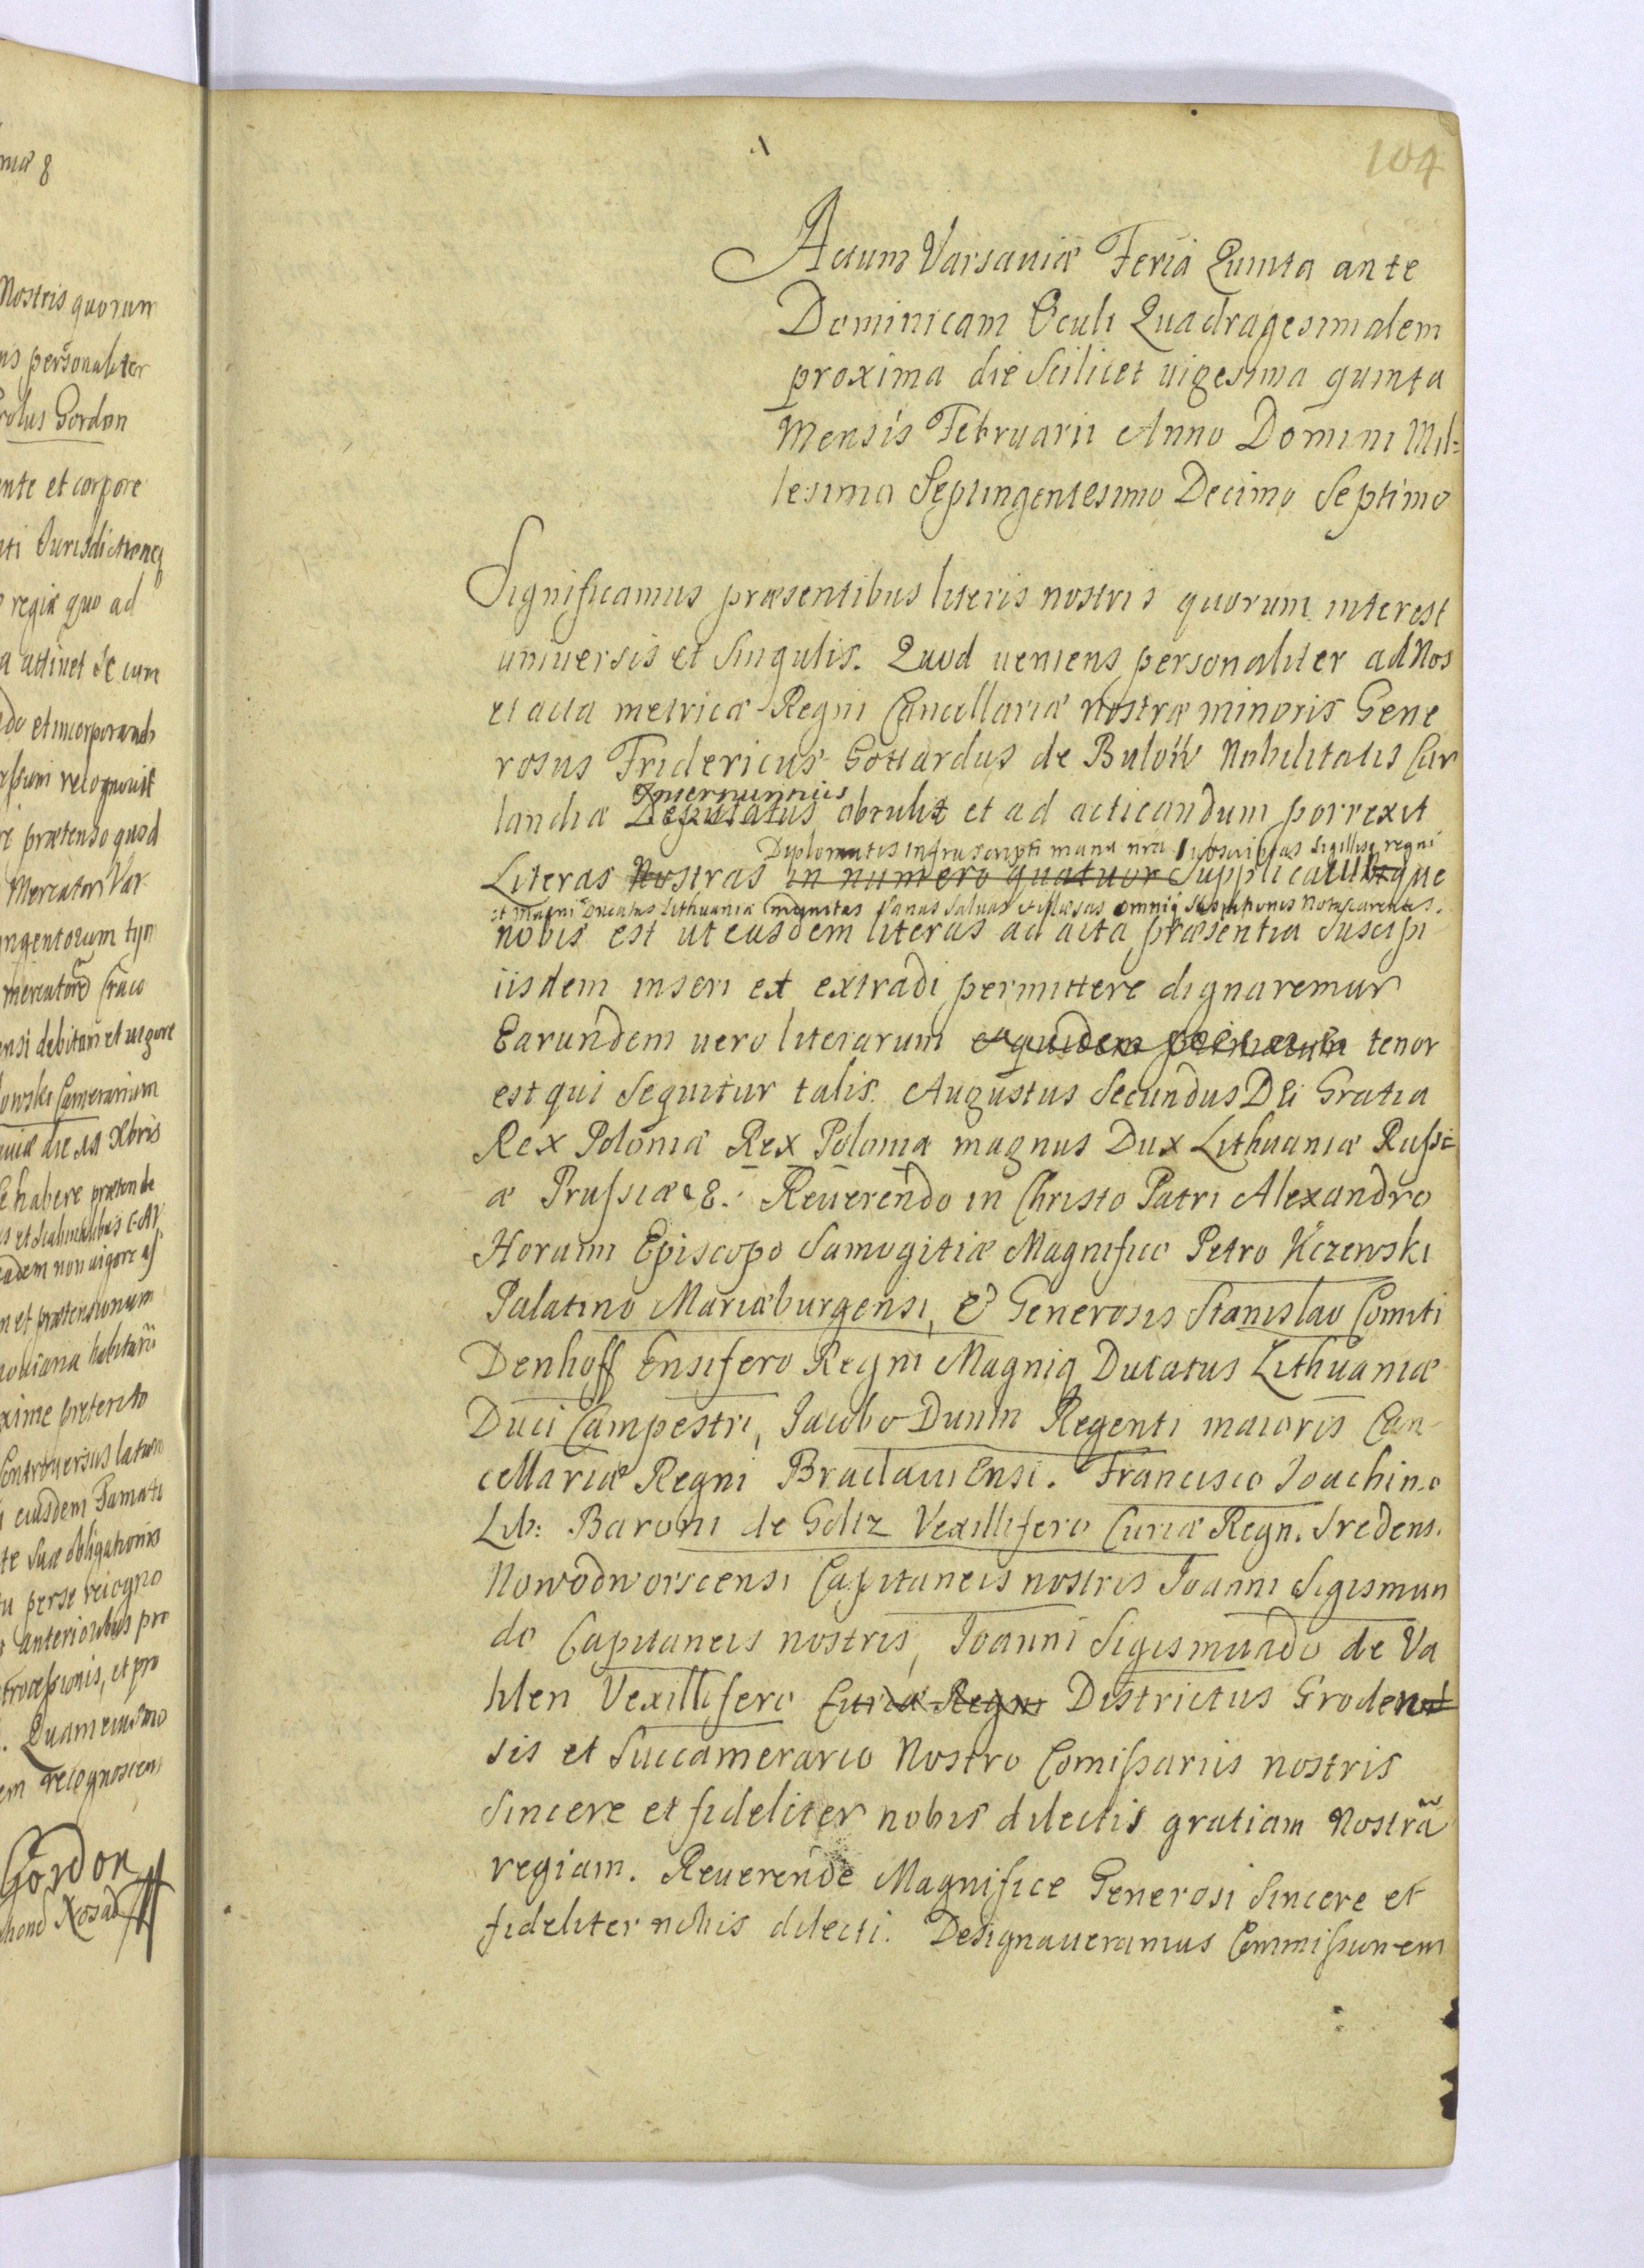 ma 8
Nostris quorum
personaliter
rolus Gordon
ente et corpore
ati Jurisdictioneq
regiæ quo ad
a attinet se cum
do et incorporand
ipsum recognouit
re prætenso quod
Mercatori Var
ingentorum tyn
mercatore Craco
ensi debitam et uigore
owski Camerarium
auiæ die 19 Xbris
se habere prætende
eadem non uigore
m et prætensionum
habitam
xime preterito
Controuersus latum
eiusdem Famati
te suæ obligationis
u perse recogno
anterioribus pro
trocessionis, et pro
Quam eiusmo
em recognoscen
Gordon
104
Actum Varsauiæ Feria Quinta ante
Dominicam Oculi Quadragesimalem
proxima die Scilicet uigesima quinta
Mensis Februarii Anno Domini Mil=
lesima Septingentesimo Decimo Septimo
Significamus præsentibus literis nostris quorum interest
universis et Singulis. Quod ueniens personaliter ad Nos
et acta metricæ Regni Cancellariæ nostræ minoris Gene
rosus Fridericus Gottardus de Bulow Nobilitatis Cur
Internunnius
landiæ Deputatus obtulit et ad acticandum porrexit
Diplomatis infrascripti manu nra subscriptas Sigillisq regni
Literas Nostras in numero quatuor Supplicatumque
et Magni Ducatus Lithuaniæ munitas Sanas Saluas et illæsas omniq Suspitionis Nota carentes.
nobis est ut easdem literas ad acta præsentia Suscipi
iisdem inseri et extradi permittere dignaremur
Earundem uero literarum equidem primarum tenor
est qui Sequitur talis. Augustus Secundus Dei Gratia
Rex Poloniæ Rex Polonia magnus Dux Lithuaniæ Russi
æ Prussiæ &. Reuerendo in Christo Patri Alexandro
Horaim Episcopo Samogitiæ Magnifico Petro Kczewski
Palatino Mariæburgensi, & Generosis Stanislao Comiti
Denhoff Ensifero Regni Magniq Ducatus Lithuaniæ
Duci Campestri, Jacobo Dunin Regenti maioris Can-
cellariæ Regni Braclauiensi. Francisco Joachimo
Lib: Baroni de Goltz Vexillifero Curiæ Regn. Sredens.
Nowodworscensi Capitaneis nostris Joanni Sigismun
do Capitaneis nostris, Joanni Sigismundo de Va
hlen Vexillifero Curiæ Regni Districtus Groden
sis et Succamerario Nostro Comissariis nostris
Sincere et fideliter nobis dilectis gratiam Nostrã
regiam. Reuerende Magnifice Generosi Sincere et
fideliter nobis dilecti. Designaueramus Commissionem